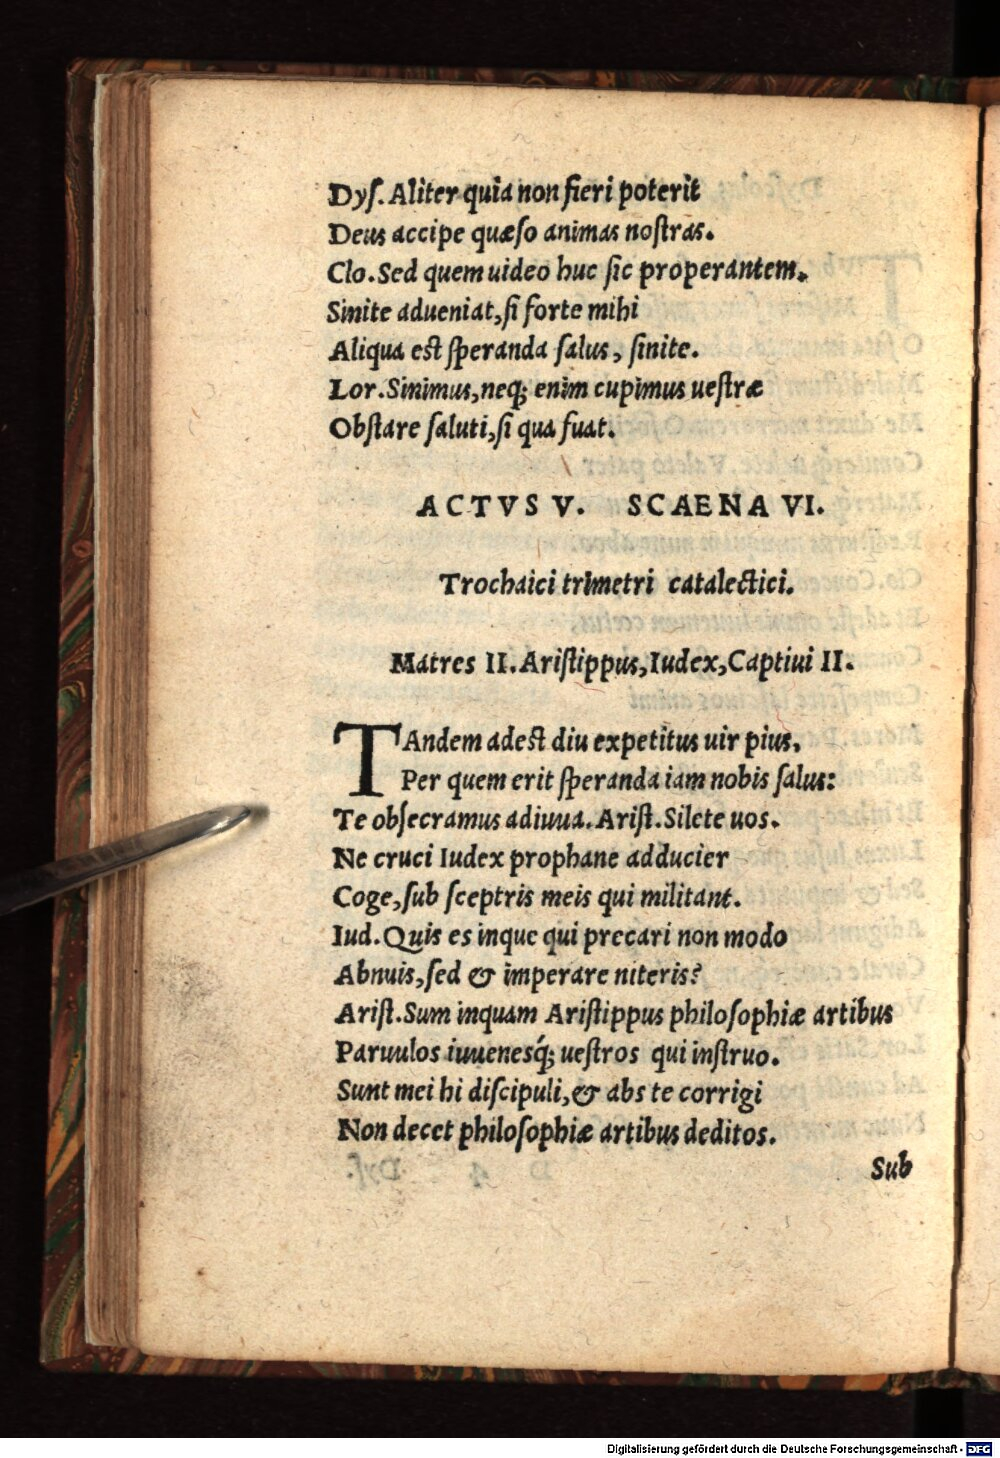 Dyſ. Aliter quia non fieri poterit
Deus accipe quæſo animas noſtras.
Clo. Sed quem uideo huc ſic properantem.
Sinite adueniat, ſi forte mihi
Aliqua est ſperanda ſalus, ſinite.
Lor. Sinimus, neq; enim cupimus ueſtræ
Obſtare ſaluti, ſi qua fuat.
ACTVS V. SCAENA VI.
Trochaici trimetri catalectici.
Matres II. Ariſtippus, Iudex, Captiui II.
TAndem adest diu expetitus uir pius,
Per quem erit ſperanda iam nobis ſalus:
Te obſecramus adiuua. Ariſt. Silete uos.
Ne cruci Iudex prophane adducier
Coge, ſub ſceptris meis qui militant.
Iud. Quis es inque qui precari non modo
Abnuis, ſed & imperare niteris?
Ariſt. Sum inquam Ariſtippus philoſophiæ artibus
Paruulos iuuenesq́; ueſtros qui inſtruo.
Sunt mei hi diſcipuli, & abs te corrigi
Non decet philoſophiæ artibus deditos.
Sub
Digitalisierung gefördert durch die Deutsche Forschungsgemeinschaft - DFG